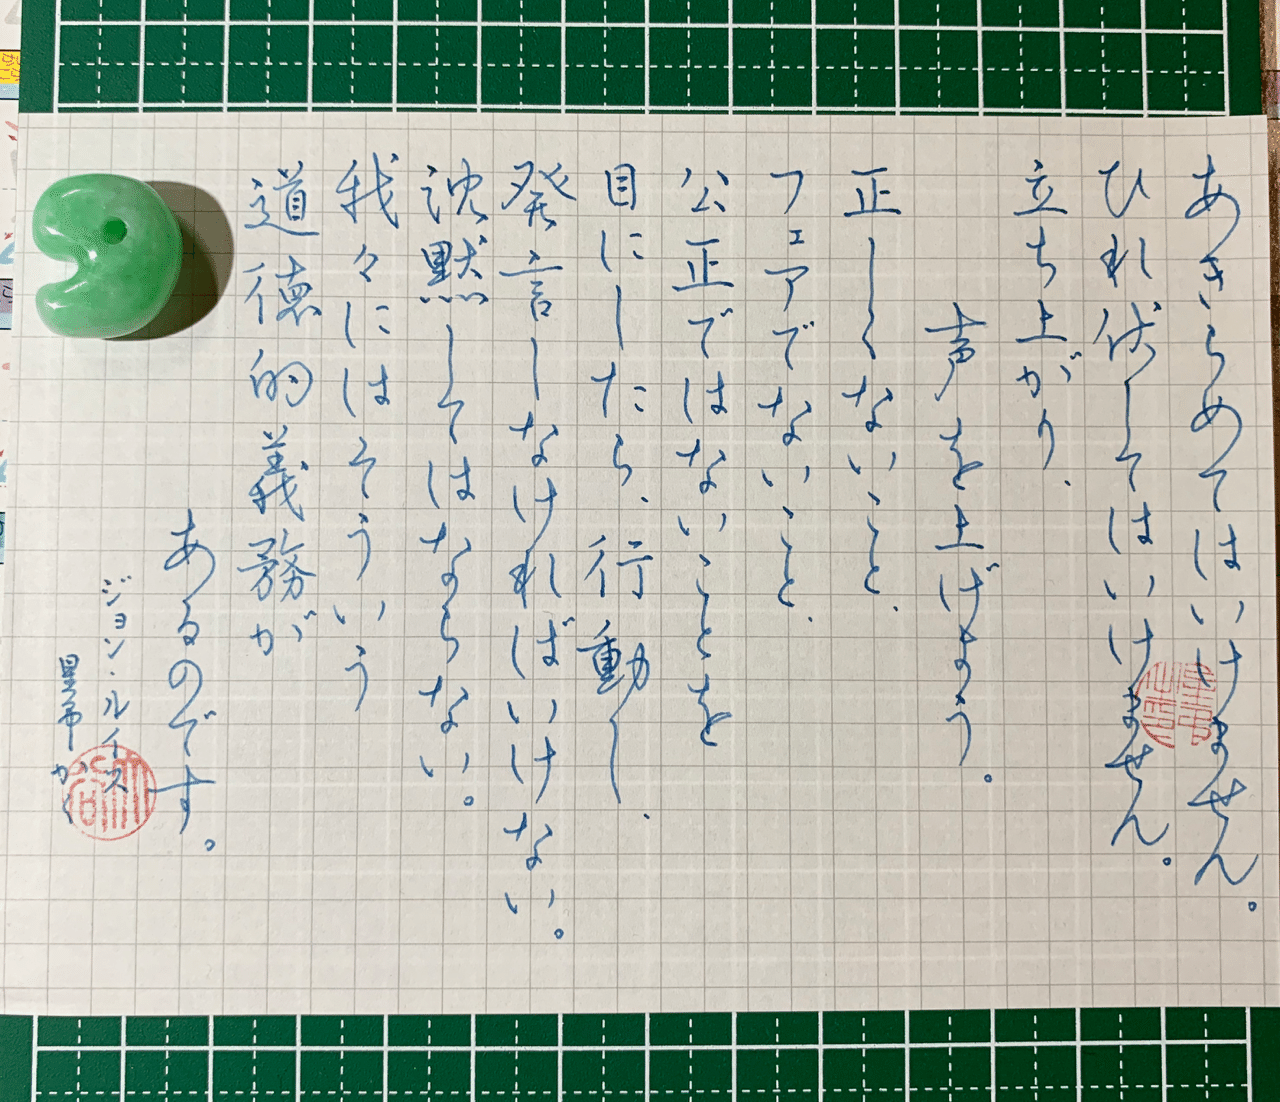 あきらめてはいけません。
ひれ伏してはいけません。
立ち上がり、
声を上げよう。
正しくないこと、
フェアでないこと、
公正ではないことを
目にしたら、行動し、
発言しなければいけない。
沈黙してはならない。
我々にはそういう
道徳的義務が
あるのです。
ジョン・ルイス
かく